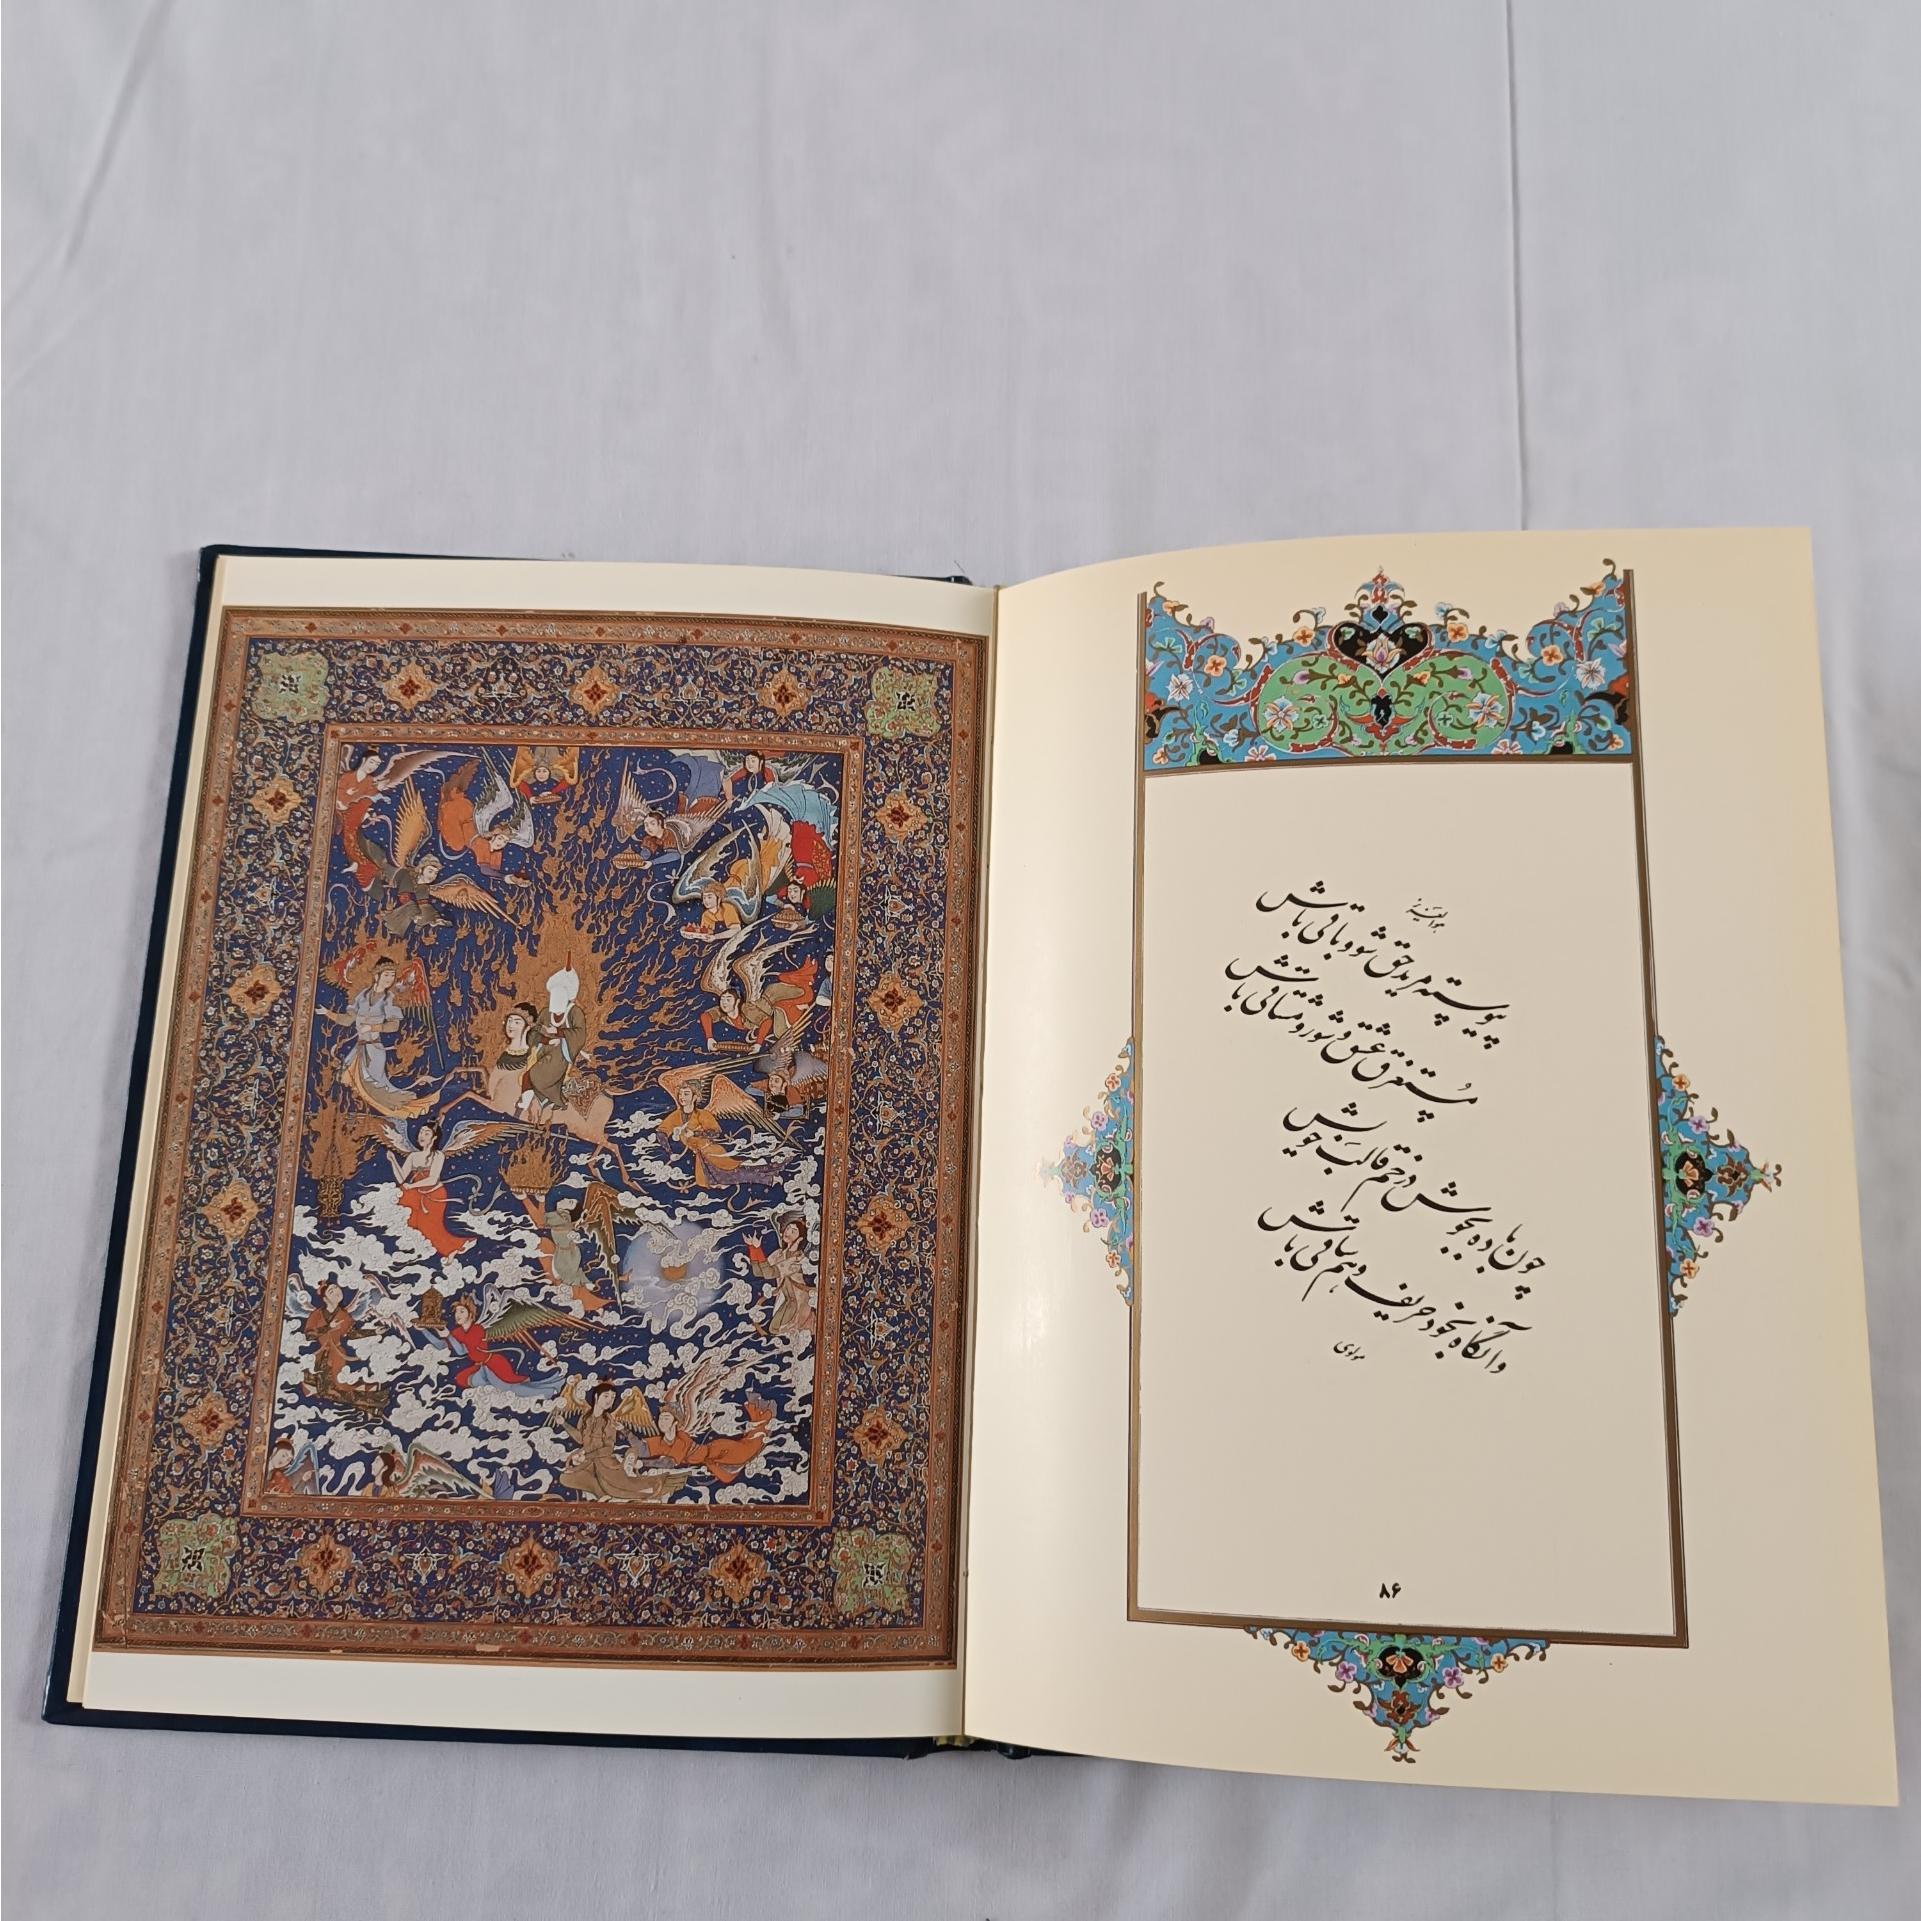 هوالعزیز
پیوسته مرید حق شو و باقی باش
مُستغرق عشق و شور و مشتاقی باش
چون باده بجوش در خم قالب خویش
وانگاه بخود حریف و هم ساقی باش
مولوی
۸۶